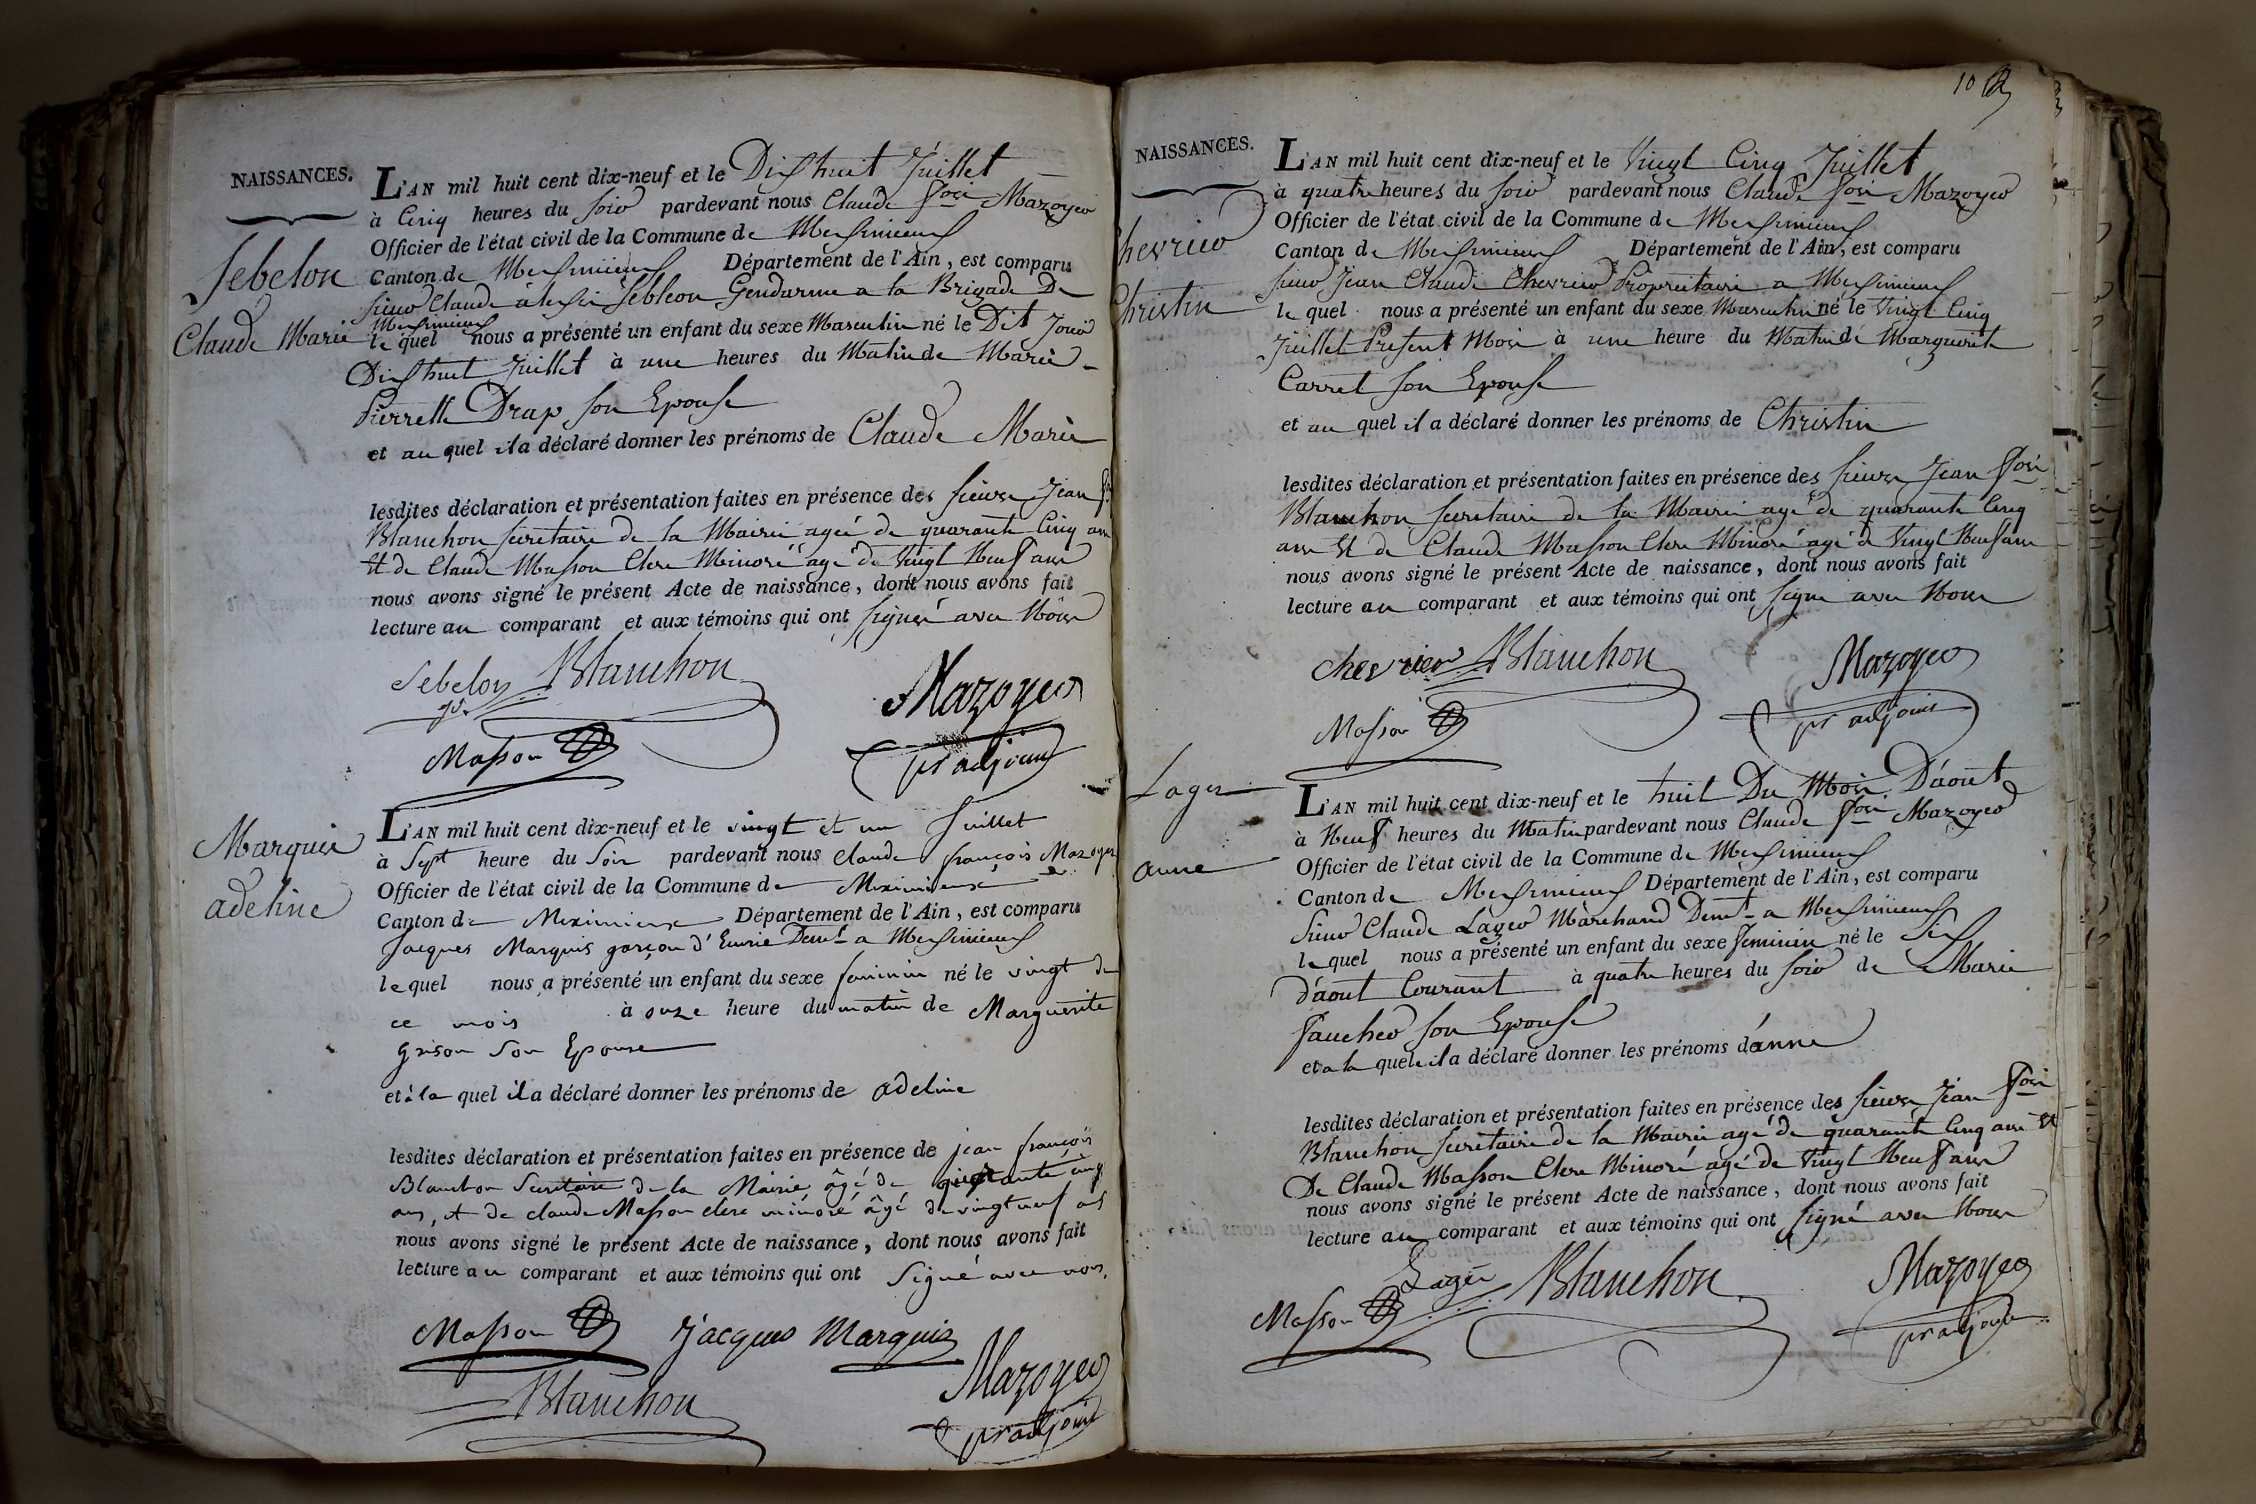 NAISSANCES.
Sebelon
Claude Marie
L'AN mil huit cent dix-neuf et le Dix huit Juillet
à Cinq heures du soir pardevant nous Claude fois Mazoyer
Officier de l'état civil de la Commune de Meximieux
Canton de Meximieux Département de l'Ain, est comparu
sieur Claude Sebleon Gendarme a la Brigade De
Meximieux
le quel nous a présenté un enfant du sexe Masculin né le Dit Jour
Dix huit Juillet à une heures du Matin de Marie
Pierrette Drap son Epouse
et au quel il a déclaré donner les prénoms de Claude Marie
lesdites déclaration et présentation faites en présence des sieurs Jean
Blanchon secretaire de la Mairie agée de quarante Cinq ans
Et de Claude Masson Clerc Minoré agé de Vingt Neuf ans
nous avons signé le présent Acte de naissance, dont nous avons fait
lecture au comparant et aux témoins qui ont signés avec Nous
Sebelon Blanchon Mazoyer
Masson pr adjoint
Marquis
adeline
L'AN mil huit cent dix-neuf et le vingt et un Juillet
à Sept heure du Soir pardevant nous claude françois Mazoyer
Officier de l'état civil de la Commune de Meximieux
Canton de Meximieux Département de l'Ain, est comparu
Jacques Marquis garçon d'Ecurie Demt a Meximieux
le quel nous a présenté un enfant du sexe feminin né le vingt de
ce mois à onze heure du matin de Marguerite
Grison Son Epouse
et à la quel il a déclaré donner les prénoms de adeline
lesdites déclaration et présentation faites en présence de jean françois
Blanchon Secritaire de la Mairie âgé de quarante cinq
ans, et de claude Masson clerc minoré âgé de vingt neuf ans
nous avons signé le présent Acte de naissance, dont nous avons fait
lecture au comparant et aux témoins qui ont Signé avec nous.
Masson Jacques Marquis
Blanchon Mazoyer
pr adjoint
10
NAISSANCES.
Chevrier
Christin
L'AN mil huit cent dix-neuf et le Vingt Cinq Juillet
à quatre heures du soir pardevant nous Claude fois Mazoyer
Officier de l'état civil de la Commune de Meximieux
Canton de Meximieux Département de l'Ain, est comparu
sieur Jean Claude Chevrier Propriétaire a Meximieux
le quel nous a présenté un enfant du sexe Masculin né le Vingt Cinq
Juillet Présent Mois à une heure du Matin de Marguerite
Carret son Epouse
et au quel il a déclaré donner les prénoms de Christin
lesdites déclaration et présentation faites en présence des sieurs Jean fois
Blanchon secretaire de la Mairie agé de quarante Cinq
ans Et de Claude Masson Clerc Minoré agé de Vingt Neuf ans
nous avons signé le présent Acte de naissance, dont nous avons fait
lecture au comparant et aux témoins qui ont signé avec Nous
Chevrier Blanchon Mazoyer
Masson pr adjoint
Lager
anne
L'AN mil huit cent dix-neuf et le huit Du Mois D'aout
à Neuf heures du Matin pardevant nous Claude fois Mazoyer
Officier de l'état civil de la Commune de Meximieux
Canton de Meximieux Département de l'Ain, est comparu
Sieur Claude Lager Marchand Demt a Meximieux
le quel nous a présenté un enfant du sexe feminin né le Six
d'aout Courant à quatre heures du soir de Marie
faucher son Epouse
et a la quele il a déclaré donner les prénoms d'anne
lesdites déclaration et présentation faites en présence des sieurs Jean fois
Blanchon secretaire de la Mairie agé de quarante Cinq ans Et
De Claude Masson Clerc Minoré agé de Vingt Neuf ans
nous avons signé le présent Acte de naissance, dont nous avons fait
lecture au comparant et aux témoins qui ont signé avec Nous
Lager Blanchon Mazoyer
Masson pr adjoint